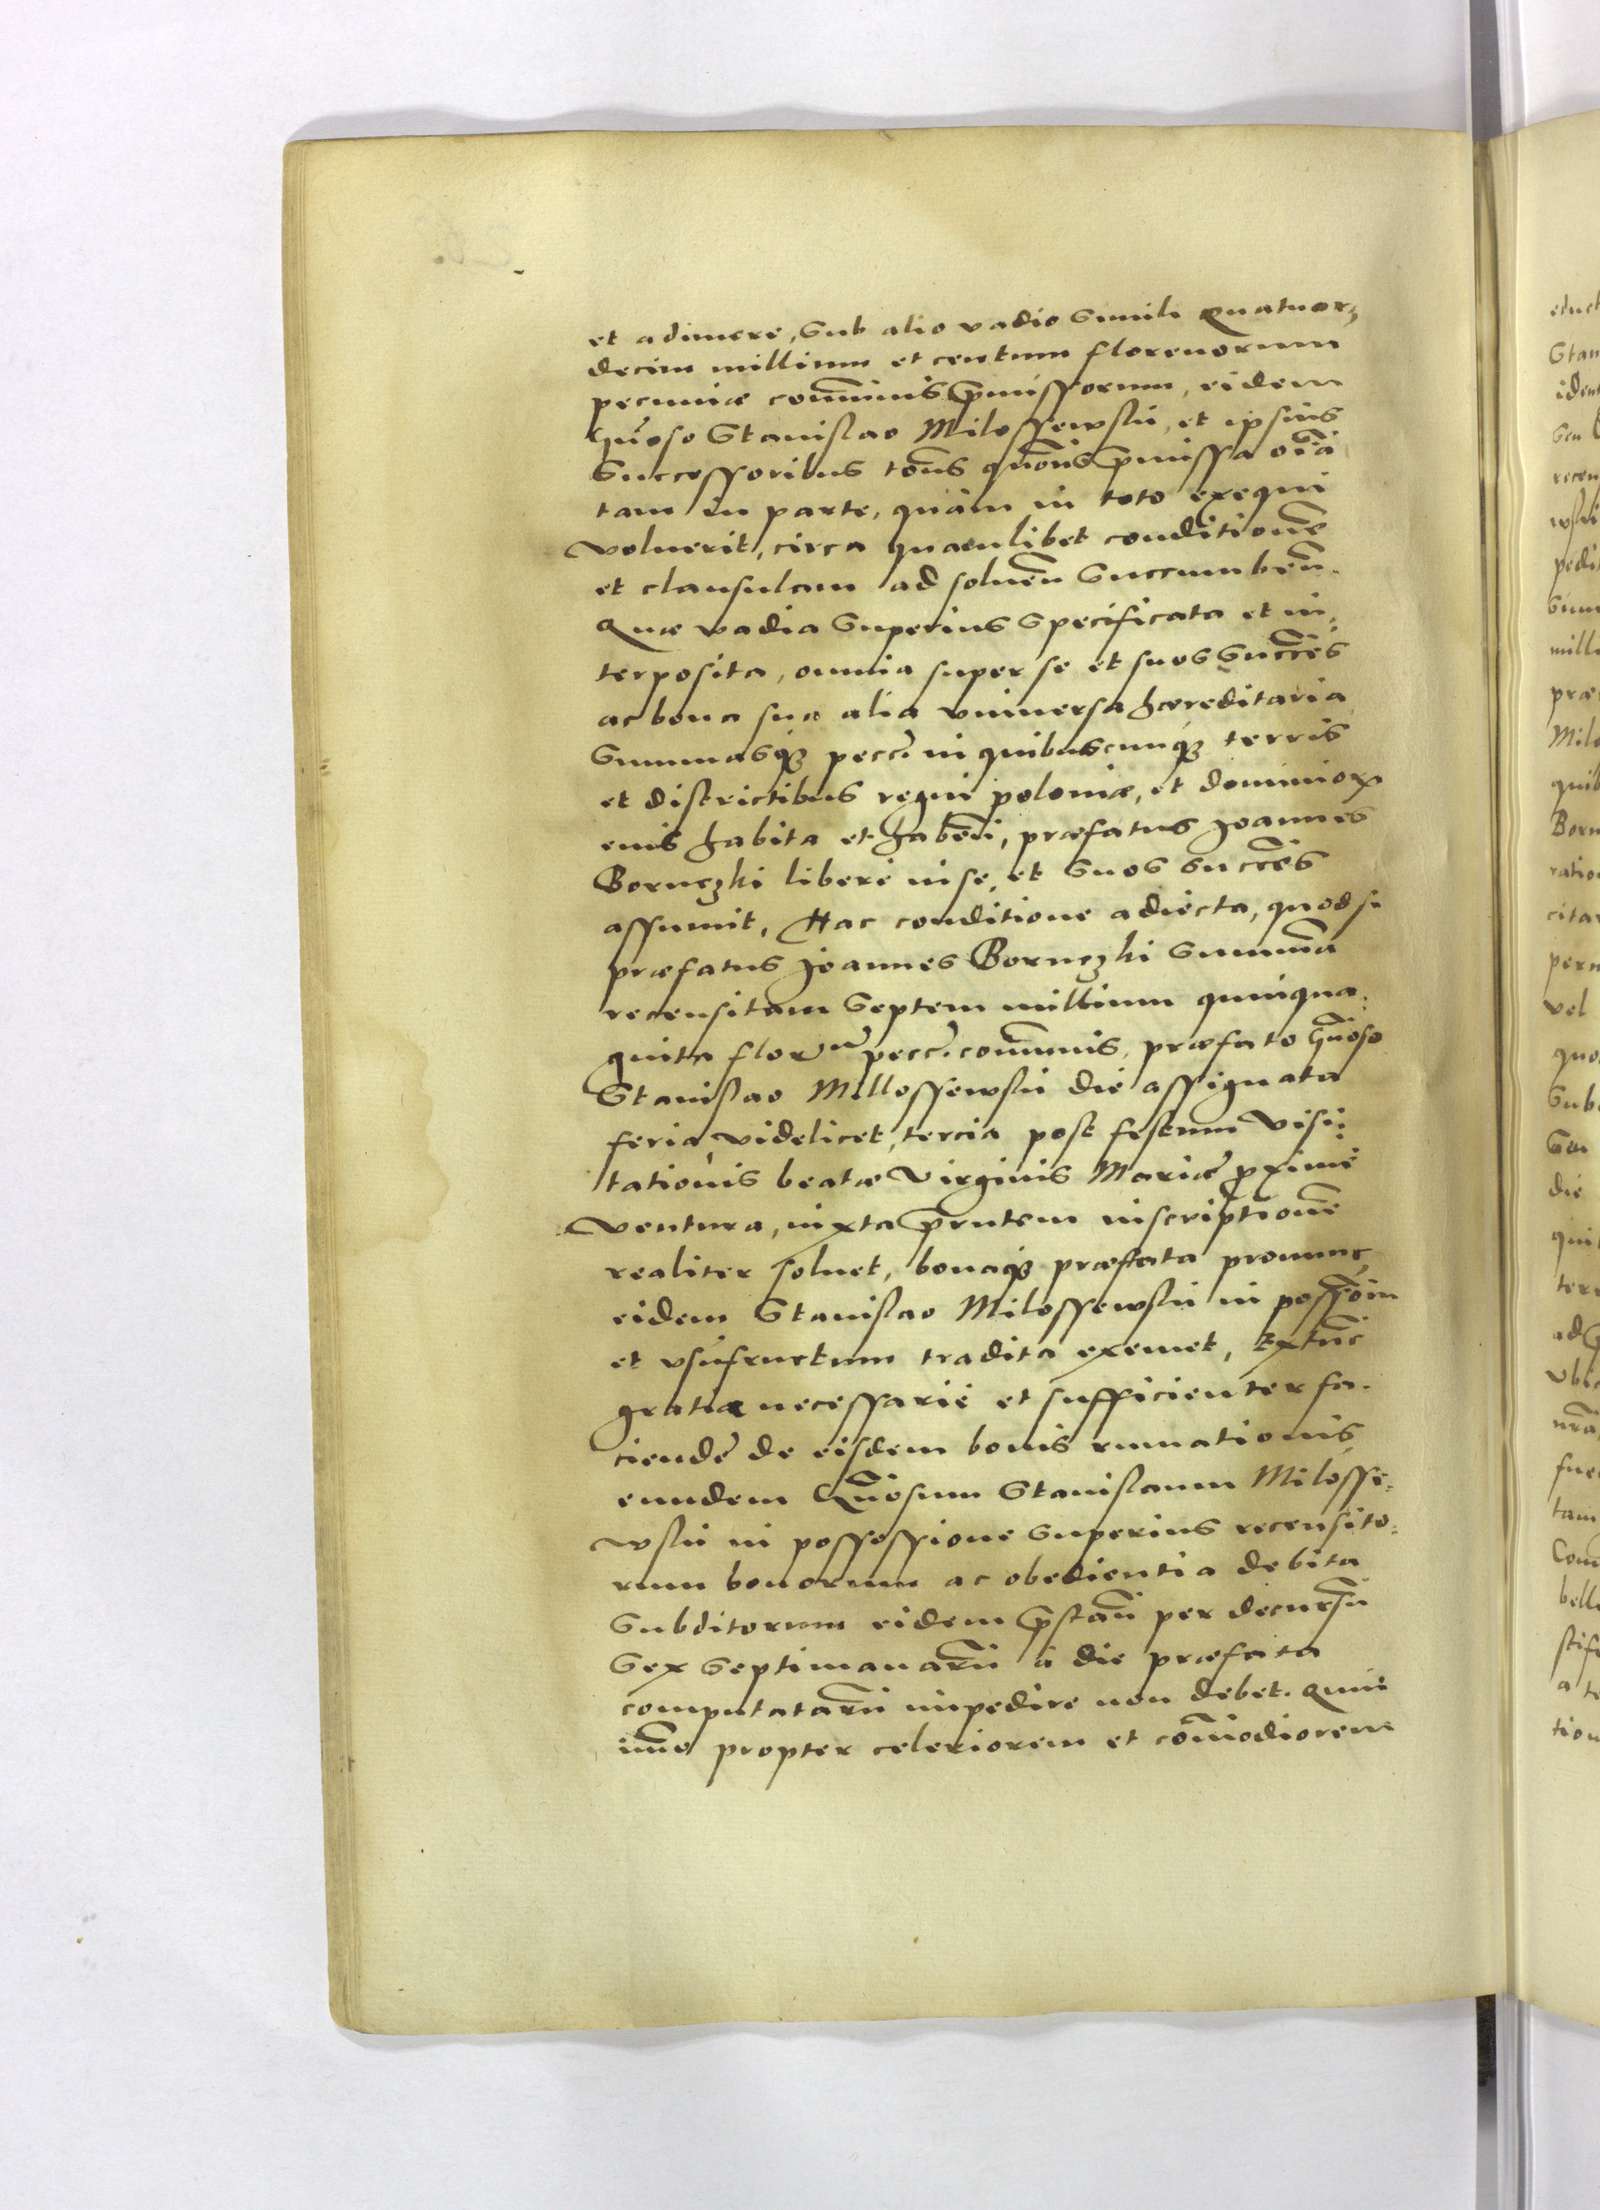 et adimere, sub alio vadio simili quatuor,
decim millium et centum florenorum
pecuniæ com̃unis p̃missorum, eidem
gñoso Stanislao Milossewski, et ipsius
Successoribus toties quoties p̃missa oĩa
tam in parte, quàm in toto exequi
voluerit, circa quamlibet conditionē
et clausulam ad soluēn succumbēn.
Quæ vadia superius specificata et in,
terposita, omnia super se et suos succ̃es
ac bona sua alia vniuersa hæreditaria
Summasq̃ʒ pecc. in quibuscunq̃ʒ terris
et districtibus regni poloniæ, et dominioꝝ
eius habita et habēn, præfatus Joannes
Bornczki liberè in se, et suos succ̃es
assumit, Hac conditione adiecta, quod si
præfatus Joannes Bornczki Summã
recensitam septem millium quinqua,
ginta florm pecc. com̃unis, præfato gñoso
Stanislao Millossewski die assignata
feria videlicet, tercia post festum visi,
tationis beatæ Virginis Mariæ ꝓximè
ventura, iuxta p̃sentem inscriptionē
realiter soluet, bonaq̃ʒ præfata pronunc
eidem Stanislao Milossewski in possõem
et vsufructum tradita exemet, Extũc
gratiæ necessariè et sufficienter fa,
ciendę de eisdem bonis rumationis
eundem Gñosum Stanislaum Milosse,
wski in possessione superius recensito,
rum bonorum ac obedientia debita
Subditorum eidem p̃stañ per decursũ
Sex septimanarũ à die præfata
computatarũ impedire non debet. Quin
im̃o propter celeriorem et com̃odiorem